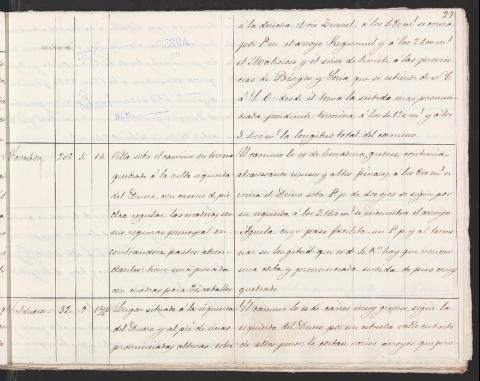 27
á la derecha el rio Duruel, á los 490 m.s se cruza
por P. en el arroyo y á los 2.600 m.s
el y el sirve de limite á las provin-
cias de Búrgos y Soria que se estiende de N. O.
á S. E. desde él toma la subida mas pronun-
ciada pendiente, termina á los 4.120 m.s y á los
5.400 m.s la longitud total del camino.
Covaleda 206 4 14 Villa sobre el camino en terreno
quebrado á la orilla izquierda
del Duero, con caserio de pie-
dra regular. Las maderas son
su riqueza principal en-
contrandose pastos abun-
dantes: tiene una posada
con cuadras para caballos
El camino lo es de herradura, continúa
atravesando espesos y altos pinares, á los 800 m.s se
cruza el Duero sobre P. p. de dos ojos se sigue por
su izquierda á los 2.160 m.s se encuentra el arroyo
cuyo paso facilita un P. p. y al termi-
nar su longitud que es de 4 K.s hay que vencer
una corta y pronunciada subida de piso muy
quebrado
52 Lugar situado á la izquierda
del Duero y al pié de unas
pronunciadas alturas, sobre
El camino lo es de carros muy sigue la
izquierda del Duero por un estrecho valle cubierto
de altos pinos, le cortan varios arroyos que pro-